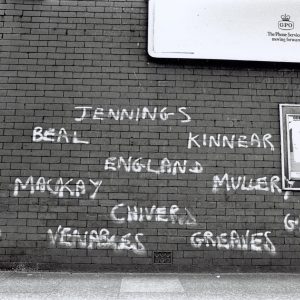 GPO
The Phone Service
moving forward
JENNINGS
BEAL KINNEAR
ENGLAND
MACKAY MULLERY
CHIVERS
VENABLES GREAVES G